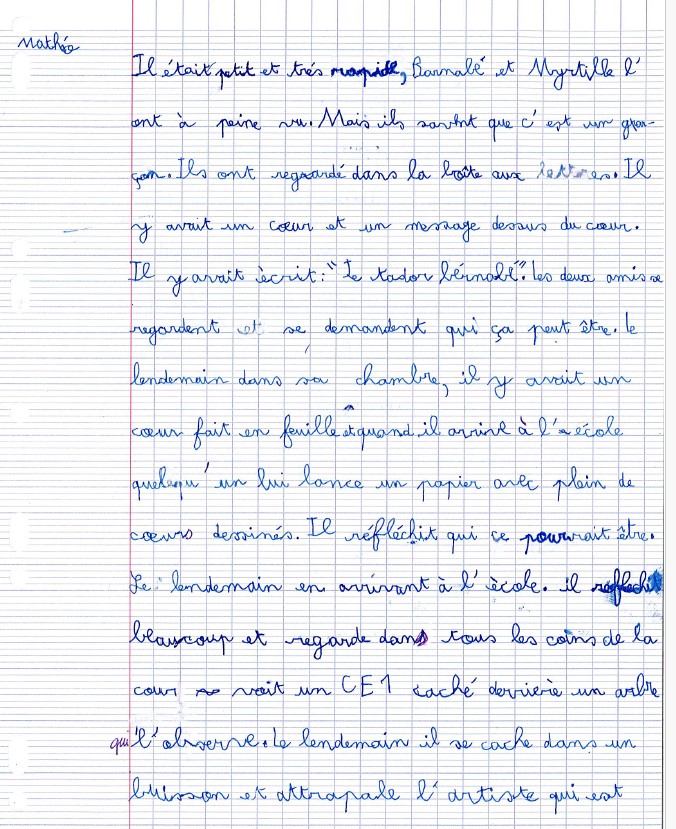 Mathéo
Il était petit et trés rapide, Barnabé et Myrtille l'
ont à peine vu. Mais ils savent que c'est un gar-
çon. Ils ont regardé dans la boîte aux lettres. Il
y avait un cœur et un message dessus du cœur.
Il y avait écrit : "Je tador bérnabé". les deux amis se
regardent et se demandent qui ça peut être. le
lendemain dans sa chambre, il y avait un
cœur fait en feuille et quand il arrive à l'école
quelequ'un lui lance un papier avec plein de
cœurs dessinés. Il réfléchit qui ce pourrait être.
Le lendemain en arrivant à l'école. il réflechit
beaucoup et regarde dans tous les coins de la
cour voit un CE1 caché derrière un arbre
qui l'observe. Le lendemain il se cache dans un
buisson et attrapale l'artiste qui est